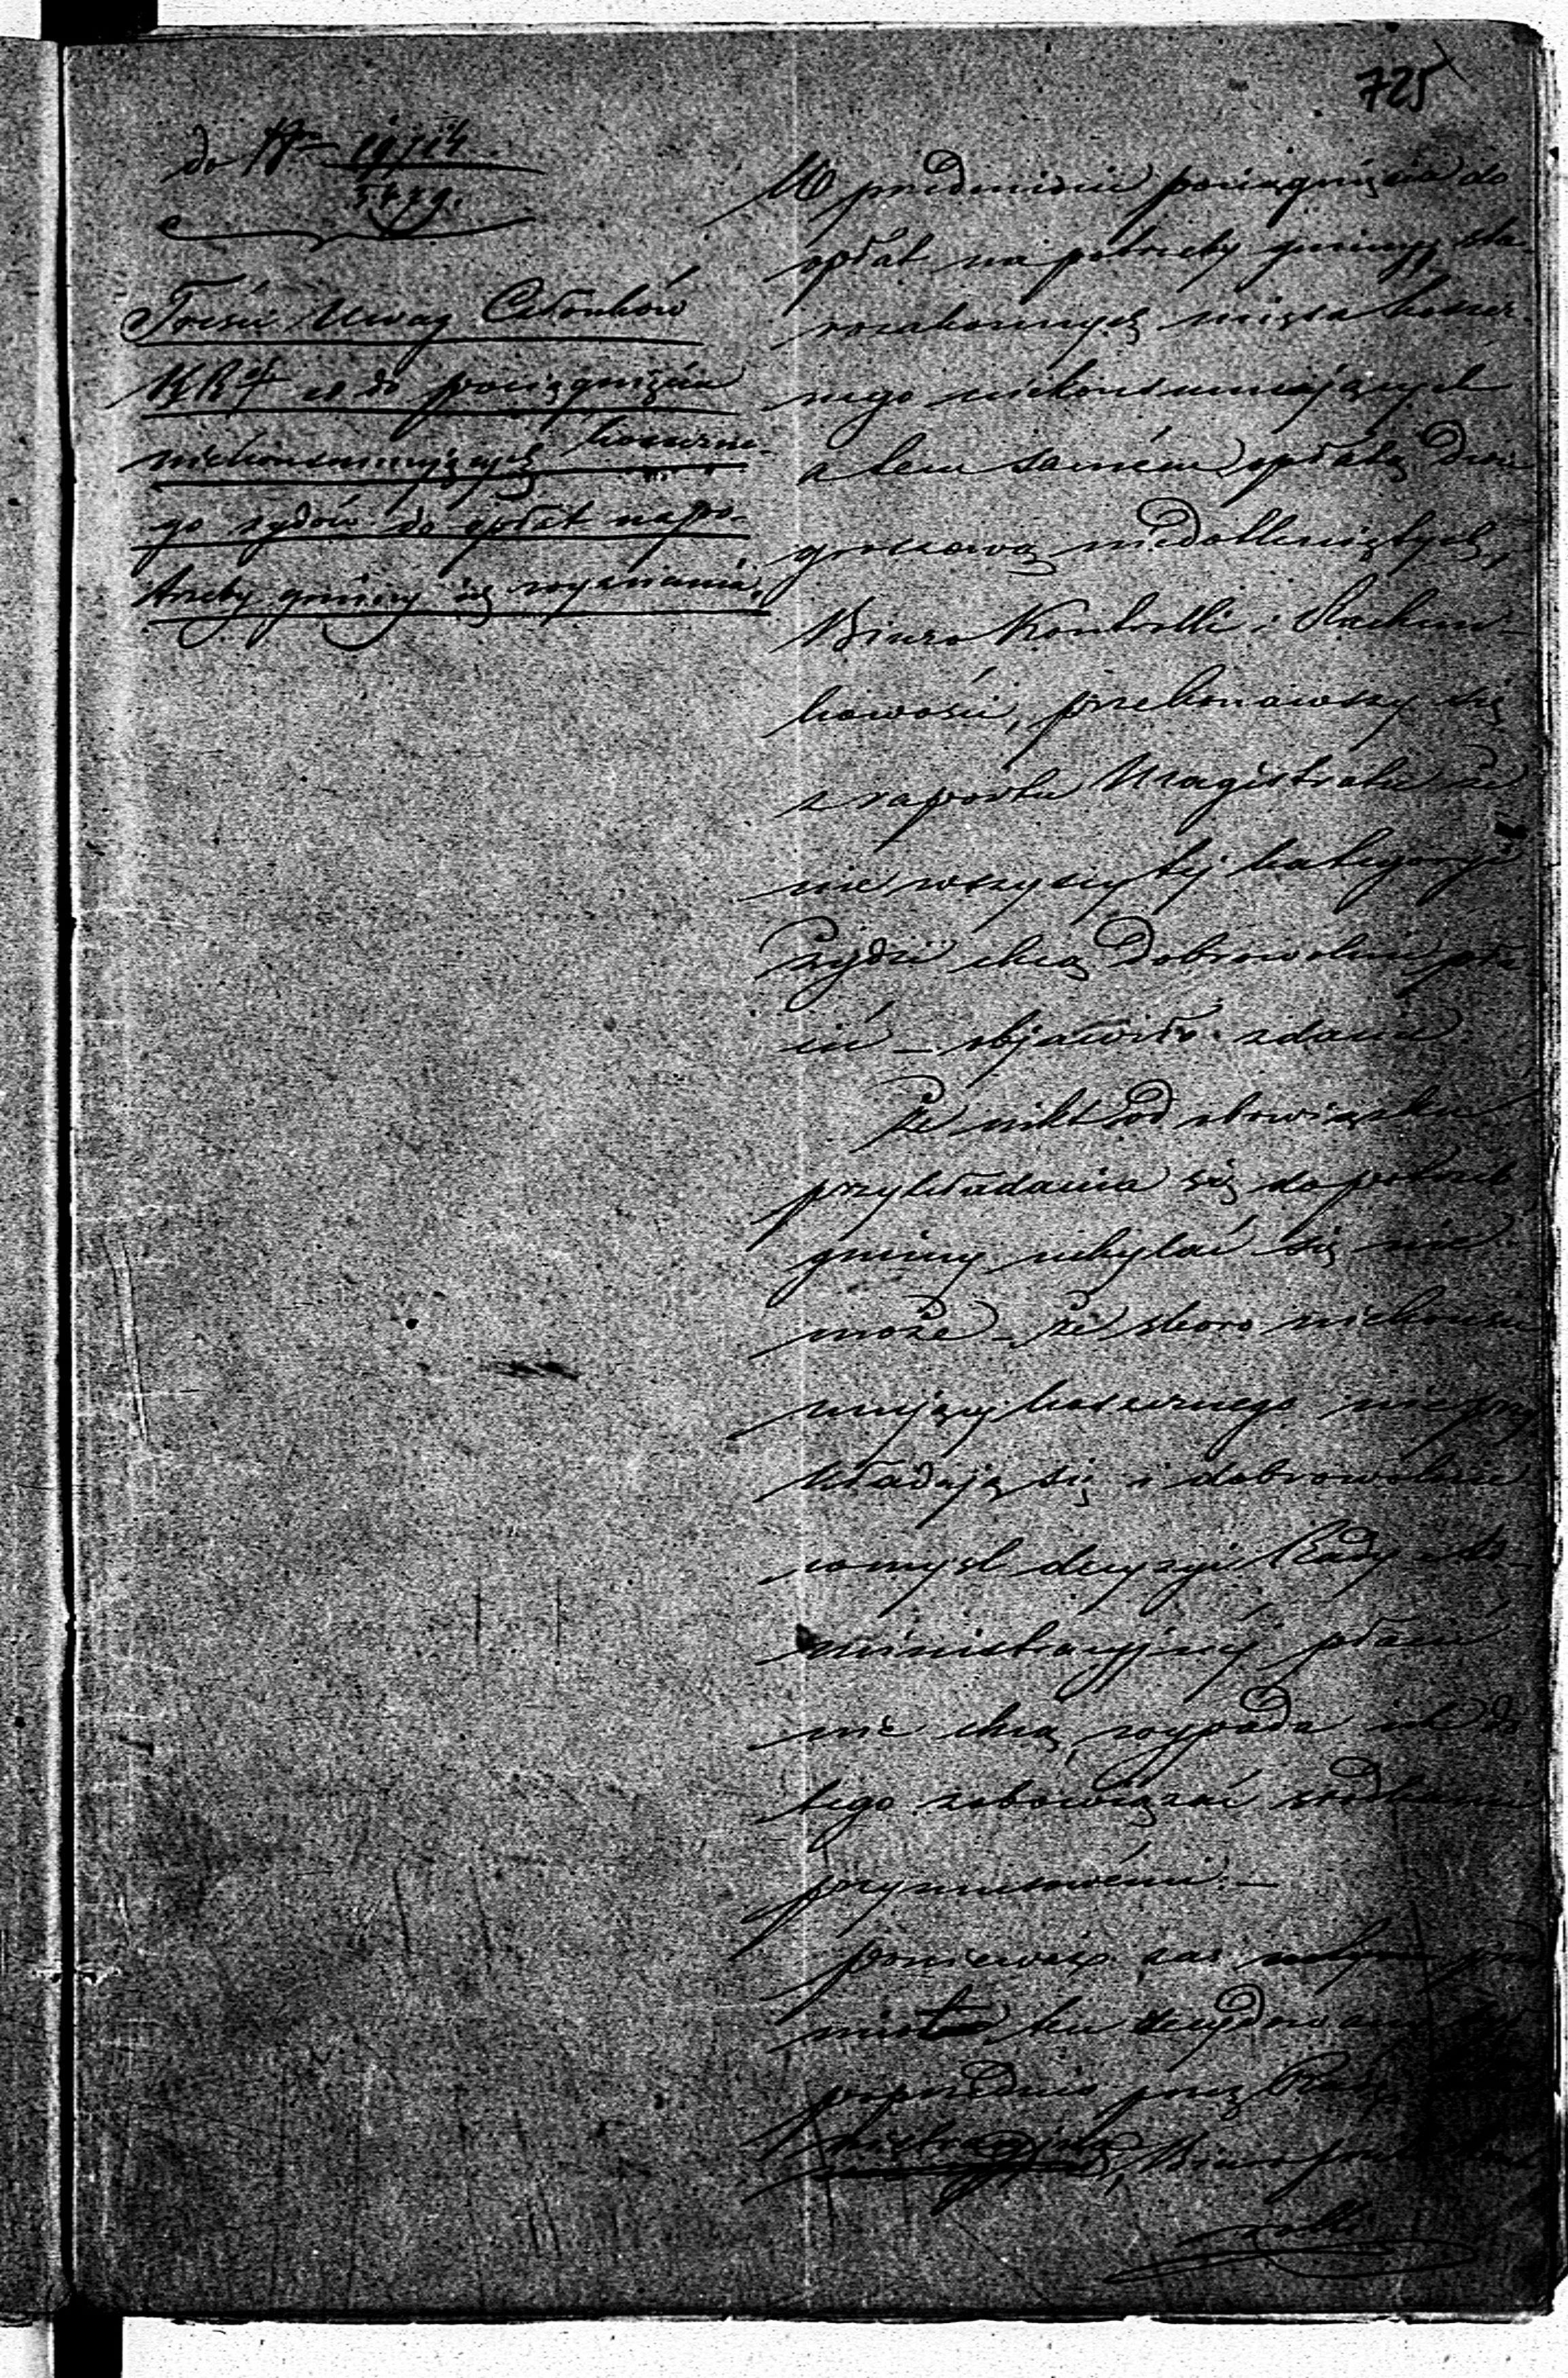 725
do Nr 19714
5479.
Treść Uwag Członków
KRS co do pociągnięcia
niekonsumujących koszerne-
go żydów do opłat na po-
trzeby gminy ich wyznania.
W przedmiocie pociągnięcia do
opłat na potrzeby gminy, sta-
rozakonnych mięsa koszer-
nego niekonsumujących
a tem samém opłatą
groszową niedotkniętych,
Biuro Kontrolli i Rachun-
kowości, przekonawszy się
z raportu Magistratu że
nie wszyscy tej kategoryi
Żydzi chcą dobrowolnie pła
cić – objawiło zdanie
Że nikt od obowiązku
przykładania się do potrzeb
gminy uchylać się nie
może – że skoro niekonsu
mujący koszernego nieprzy
kładają się i dobrowolnie
w myśl decyzyi Rady Ad-
ministracyjnéj płacić
nie chcą, wypada ich do
tego zobowiązać środkami
przymusowémi. –
ponieważ zaś
ten
poprzednio przez Radę
nistracyjną, Biuro